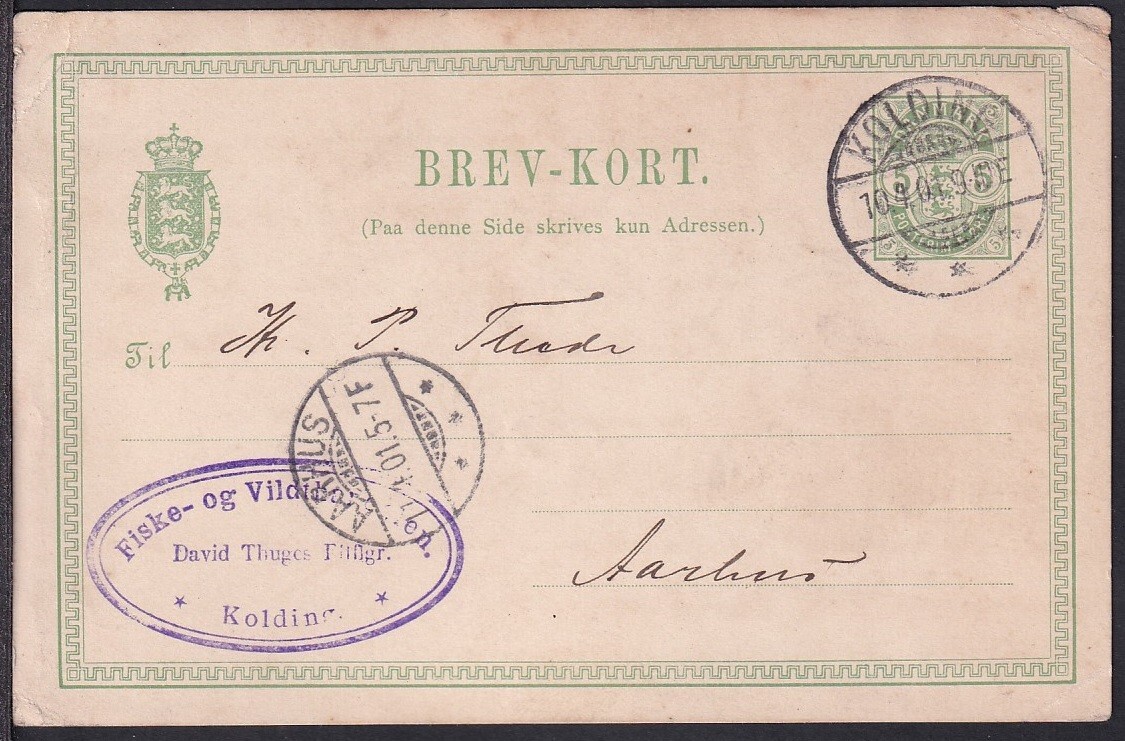 BREV-KORT.
(Paa denne Side skrives kun Adressen.)
KOLDING
10.4.01. 9-10E
DANMARK
5 5
Til
Th. P. Thode
AARHUS
11.4.01.5-7F
Fiske- og
David Thuges Eftflgr.
Kolding.
Aarhus